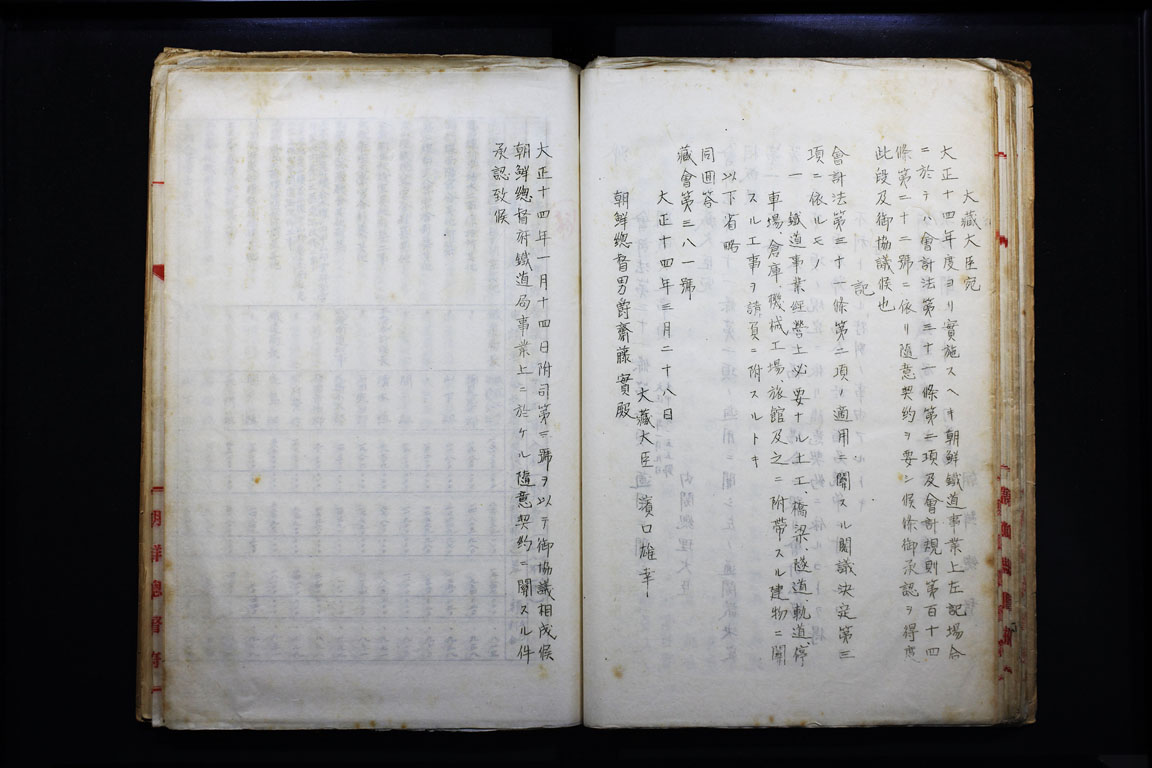 大藏大臣宛
大正十四年度ヨリ實施スヘキ朝鮮鐵道事業上左記場合
ニ於テハ會計法第三十一條第二項及會計規則第百十四
條第二十二號ニ依リ隨意契約ヲ要シ候條御承認ヲ得度
此段及御協議候也
記
會計法第三十一條第二項ノ適用ニ關スル閣議決定第三
項ニ依ルモノ
一 鐵道事業經營上必要ナル土工、橋梁、隧道、軌道、停
車場、倉庫、機械工場旅館及之ニ附帶スル建物ニ關
スル工事ヲ請負ニ附スルトキ
以下省略
同回答
藏會第三八一號
大正十四年三月二十八日
大藏大臣 濱口雄幸
朝鮮總督男爵齋藤實殿
大正十四年一月十四日附司第三號ヲ以テ御協議相成候
朝鮮總督府鐵道局事業上ニ於ケル隨意契約ニ關スル件
承認致候
朝鮮總督府